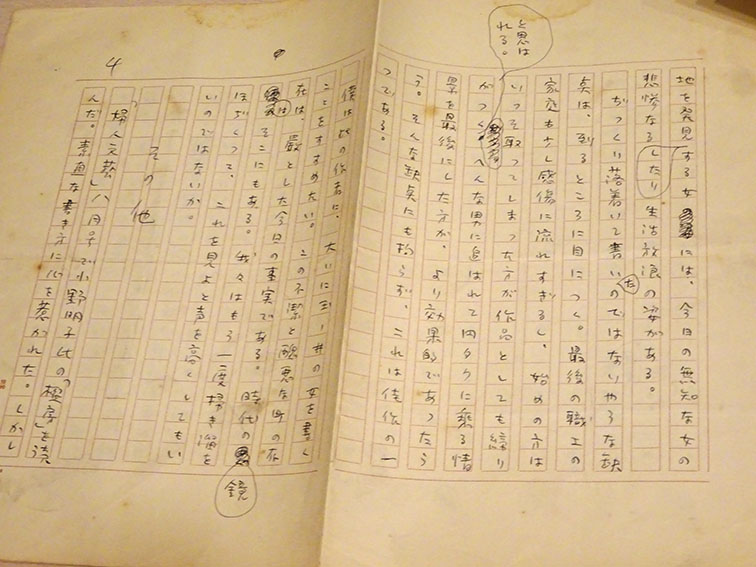 と思はれる。
地を発見する女には、今日の無知な女の
悲惨なる
したり
生活放浪の姿がある。
ぢつくり落着いて書いたのではないやうな缺
点は、到るところに目につく。最後の職工の
家庭も少し感傷に流れすぎるし、始めの方は
いつそ取つてしまつた方が作品としても締り
がつく へんな男に追はれて円タクに乗る情
景を最後にした方が、より効果的であつたら
う。そんな缺点にも拘らず、これは佳作の一
つである。
4
僕は此の作者に、大いに玉ノ井の女を書く
ことをすすめたい。この不潔と醜悪な町の存
在は、厳とした今日の事実である。時代の
鏡
はそこにもある。我々はもう一度掃き溜を
ほじくつて、これを見よと声を高くしてもい
いのではないか。
その他
「婦人文藝」八月号で小野明子氏の「 房」を読
んだ。素直な書き方に心を惹かれた。しかし